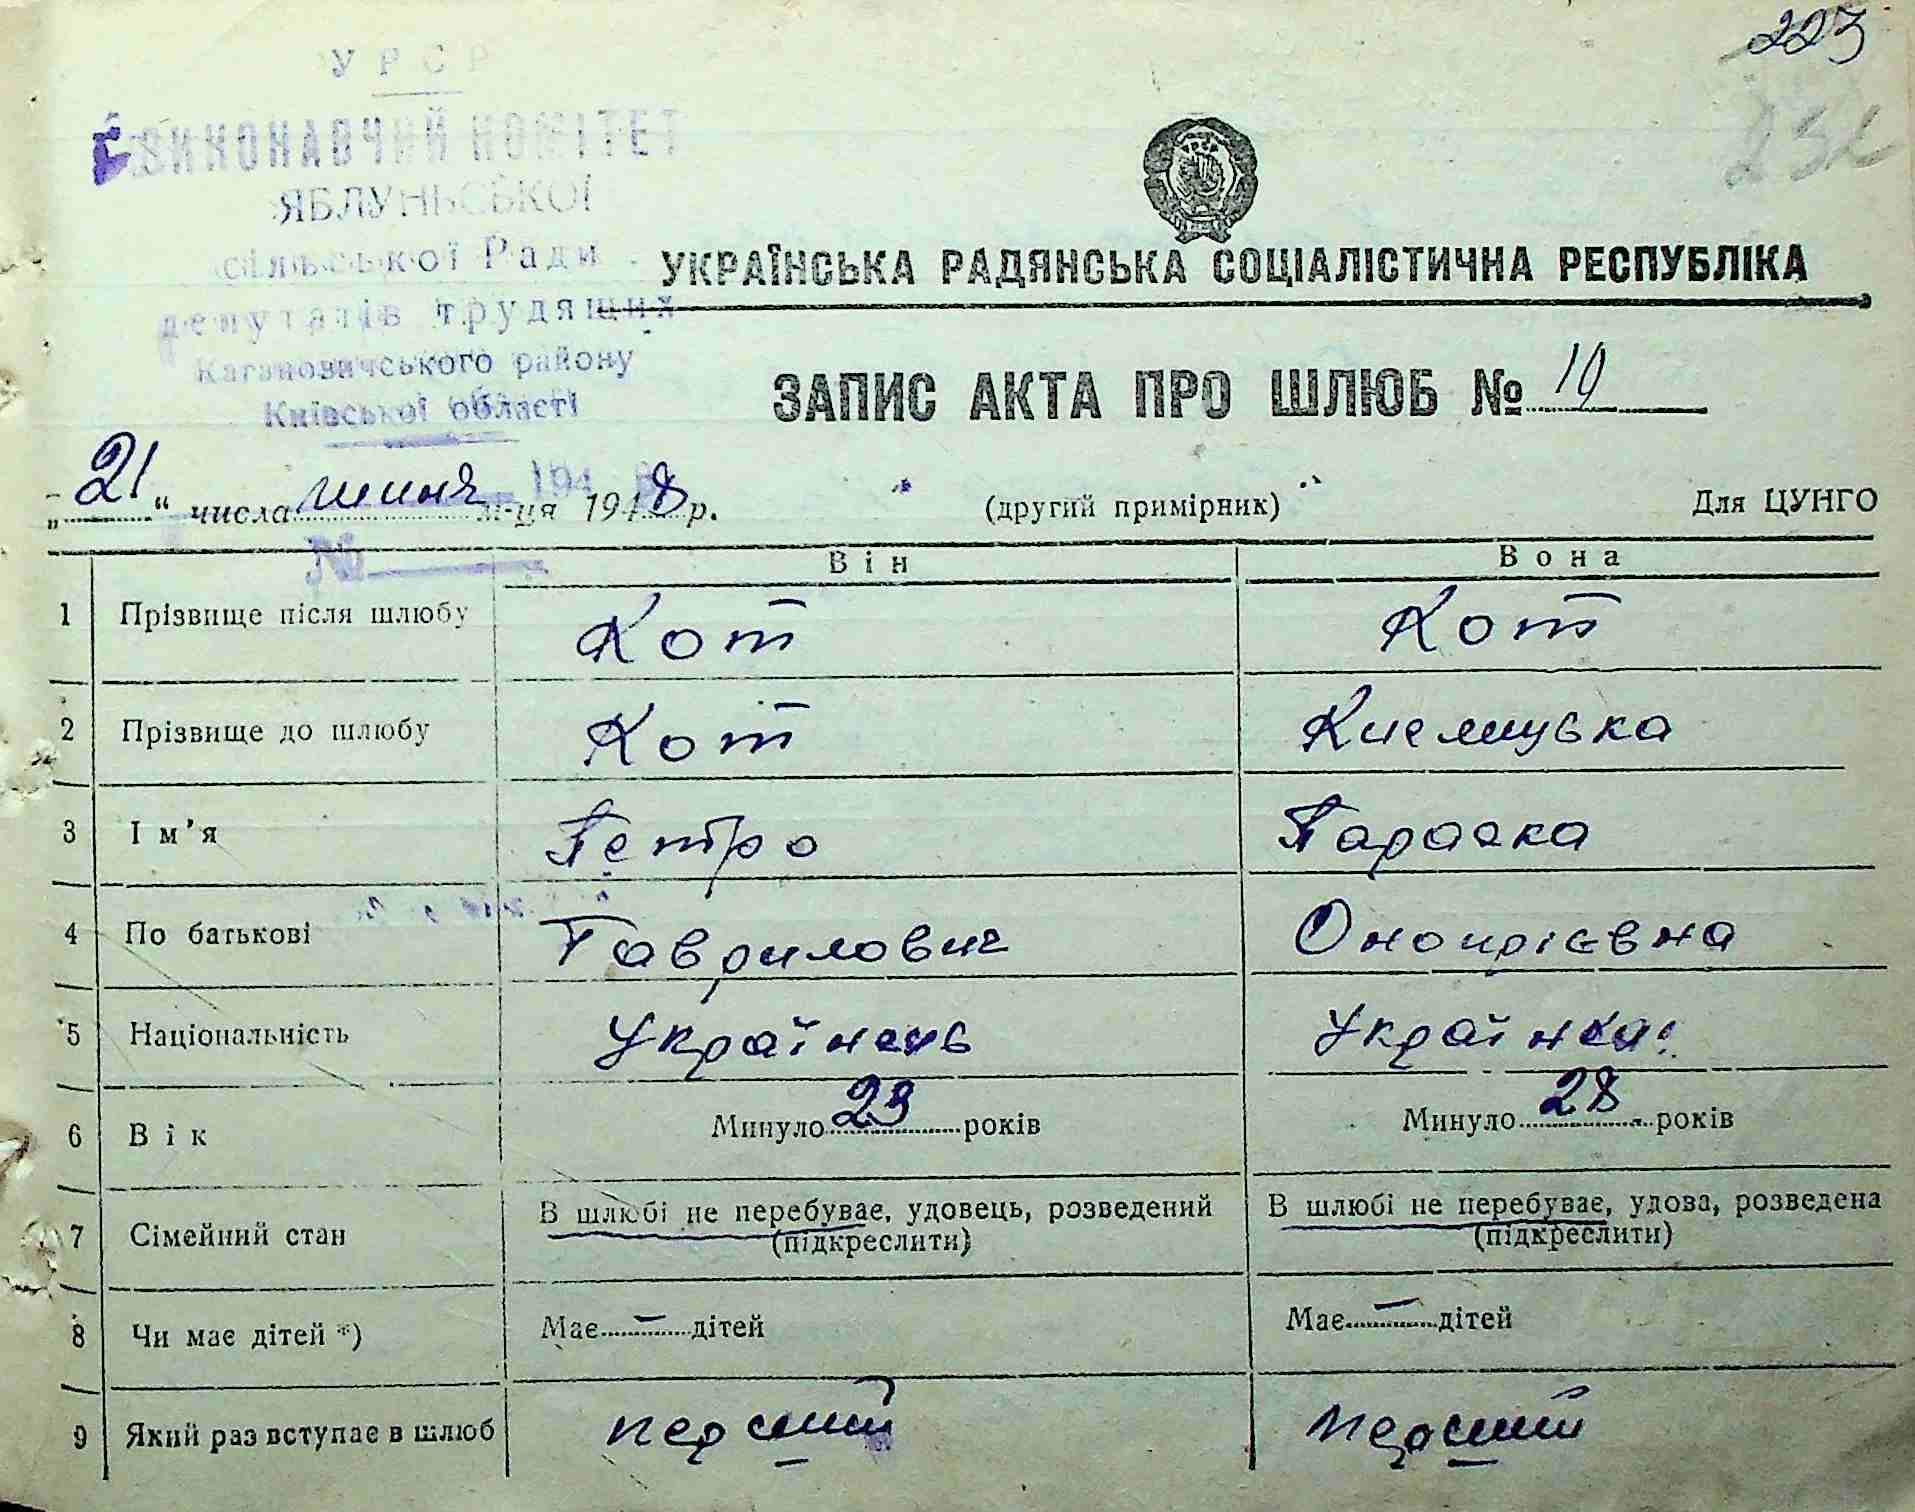 223
232
УРСР
ВИКОНАВЧИЙ КОМІТЕТ
ЯБЛУНЬСЬКОЇ
сільської Ради
депутатів трудящих
Кагановичського району
Київської області
194
№
УКРАЇНСЬКА РАДЯНСЬКА СОЦІАЛІСТИЧНА РЕСПУБЛІКА
ЗАПИС АКТА ПРО ШЛЮБ № 10
„21“ числа м-ця 1948 р.
(другий примірник)
Для ЦУНГО
Він Вона
1 Прізвище після шлюбу Кот Кот
2 Прізвище до шлюбу Кот
3 Ім’я Петро Параска
4 По батькові Гаврилович Онопрієвна
5 Національність Українець Українка
6 Вік Минуло 23 років Минуло 28 років
7 Сімейний стан В шлюбі не перебуває, удовець, розведений (підкреслити) В шлюбі не перебуває, удова, розведена (підкреслити)
8 Чи має дітей *) Має — дітей Має — дітей
9 Який раз вступає в шлюб перший перший